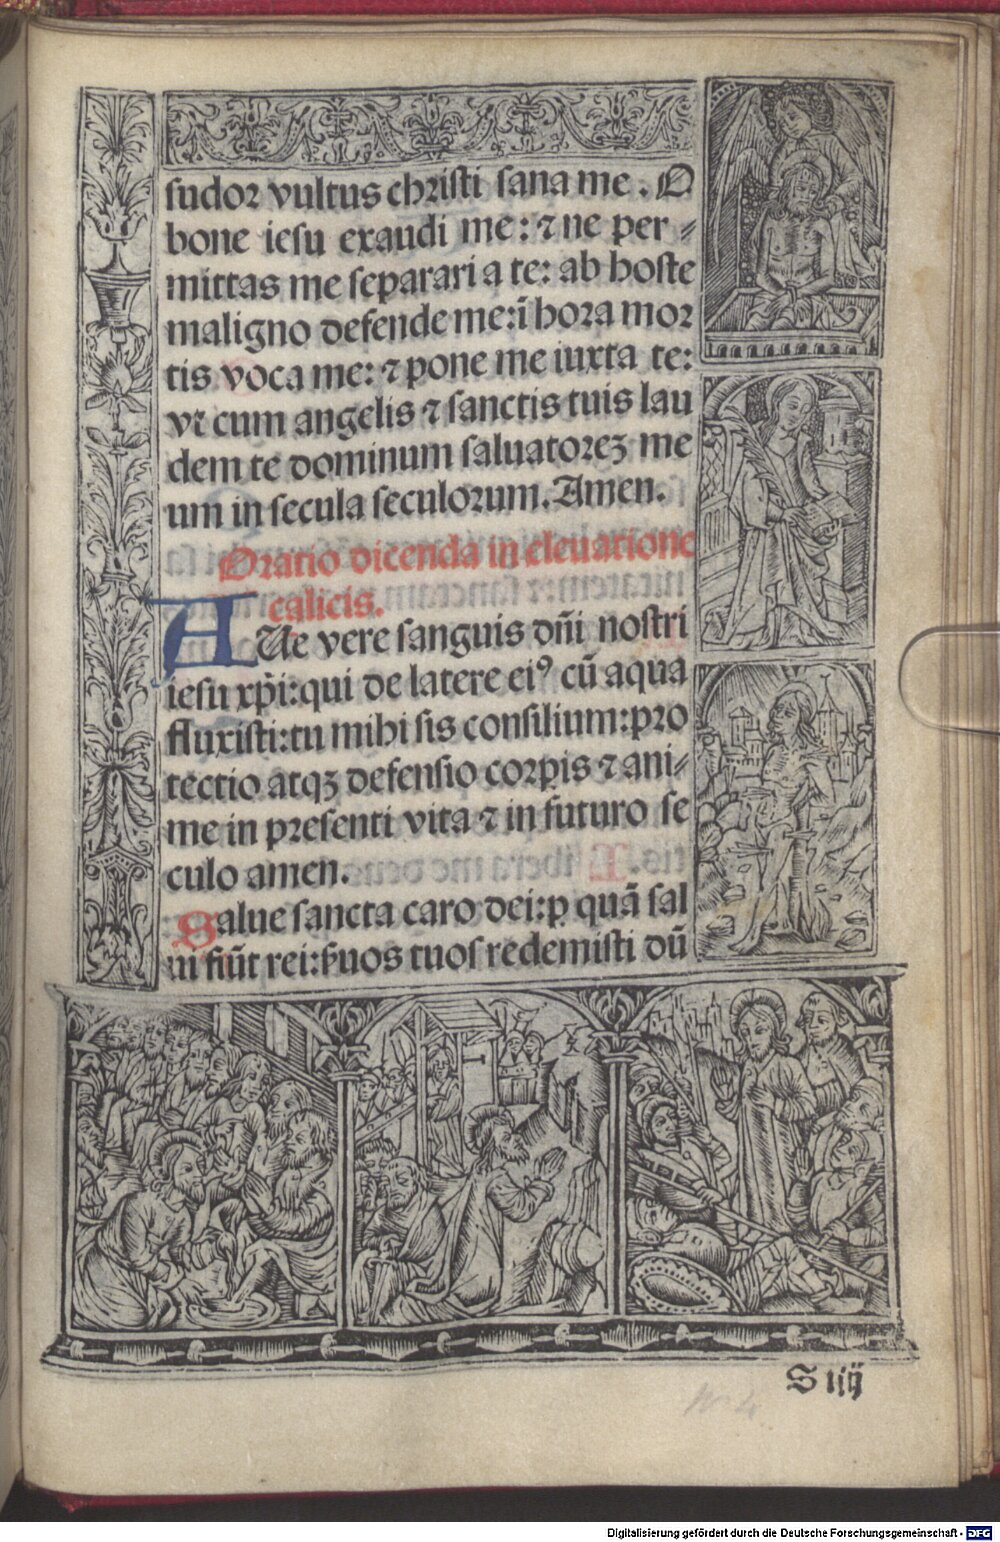 sudor vultus christi sana me. O
bone iesu exaudi me: ⁊ ne per⸗
mittas me separari a te: ab hoste
maligno defende me: ī hora mor
tis voca me: ⁊ pone me iuxta te:
vt cum angelis ⁊ sanctis tuis lau
dem te dominum saluatorez me
um in secula seculorum. Amen.
Oratio dicenda in eleuatione
calicis.
AUe vere sanguis dñi nostri
iesu xp̄i: qui de latere eiꝰ cū aqua
fluxisti: tu mihi sis consilium: pro
tectio atqꝫ defensio corpis ⁊ ani⸗
me in presenti vita ⁊ in futuro se
culo amen.
Salue sancta caro dei: ꝑ quā sal
ui fiūt rei: ẜuos tuos redemisti dū
S iij
Digitalisierung gefördert durch die Deutsche Forschungsgemeinschaft - DFG